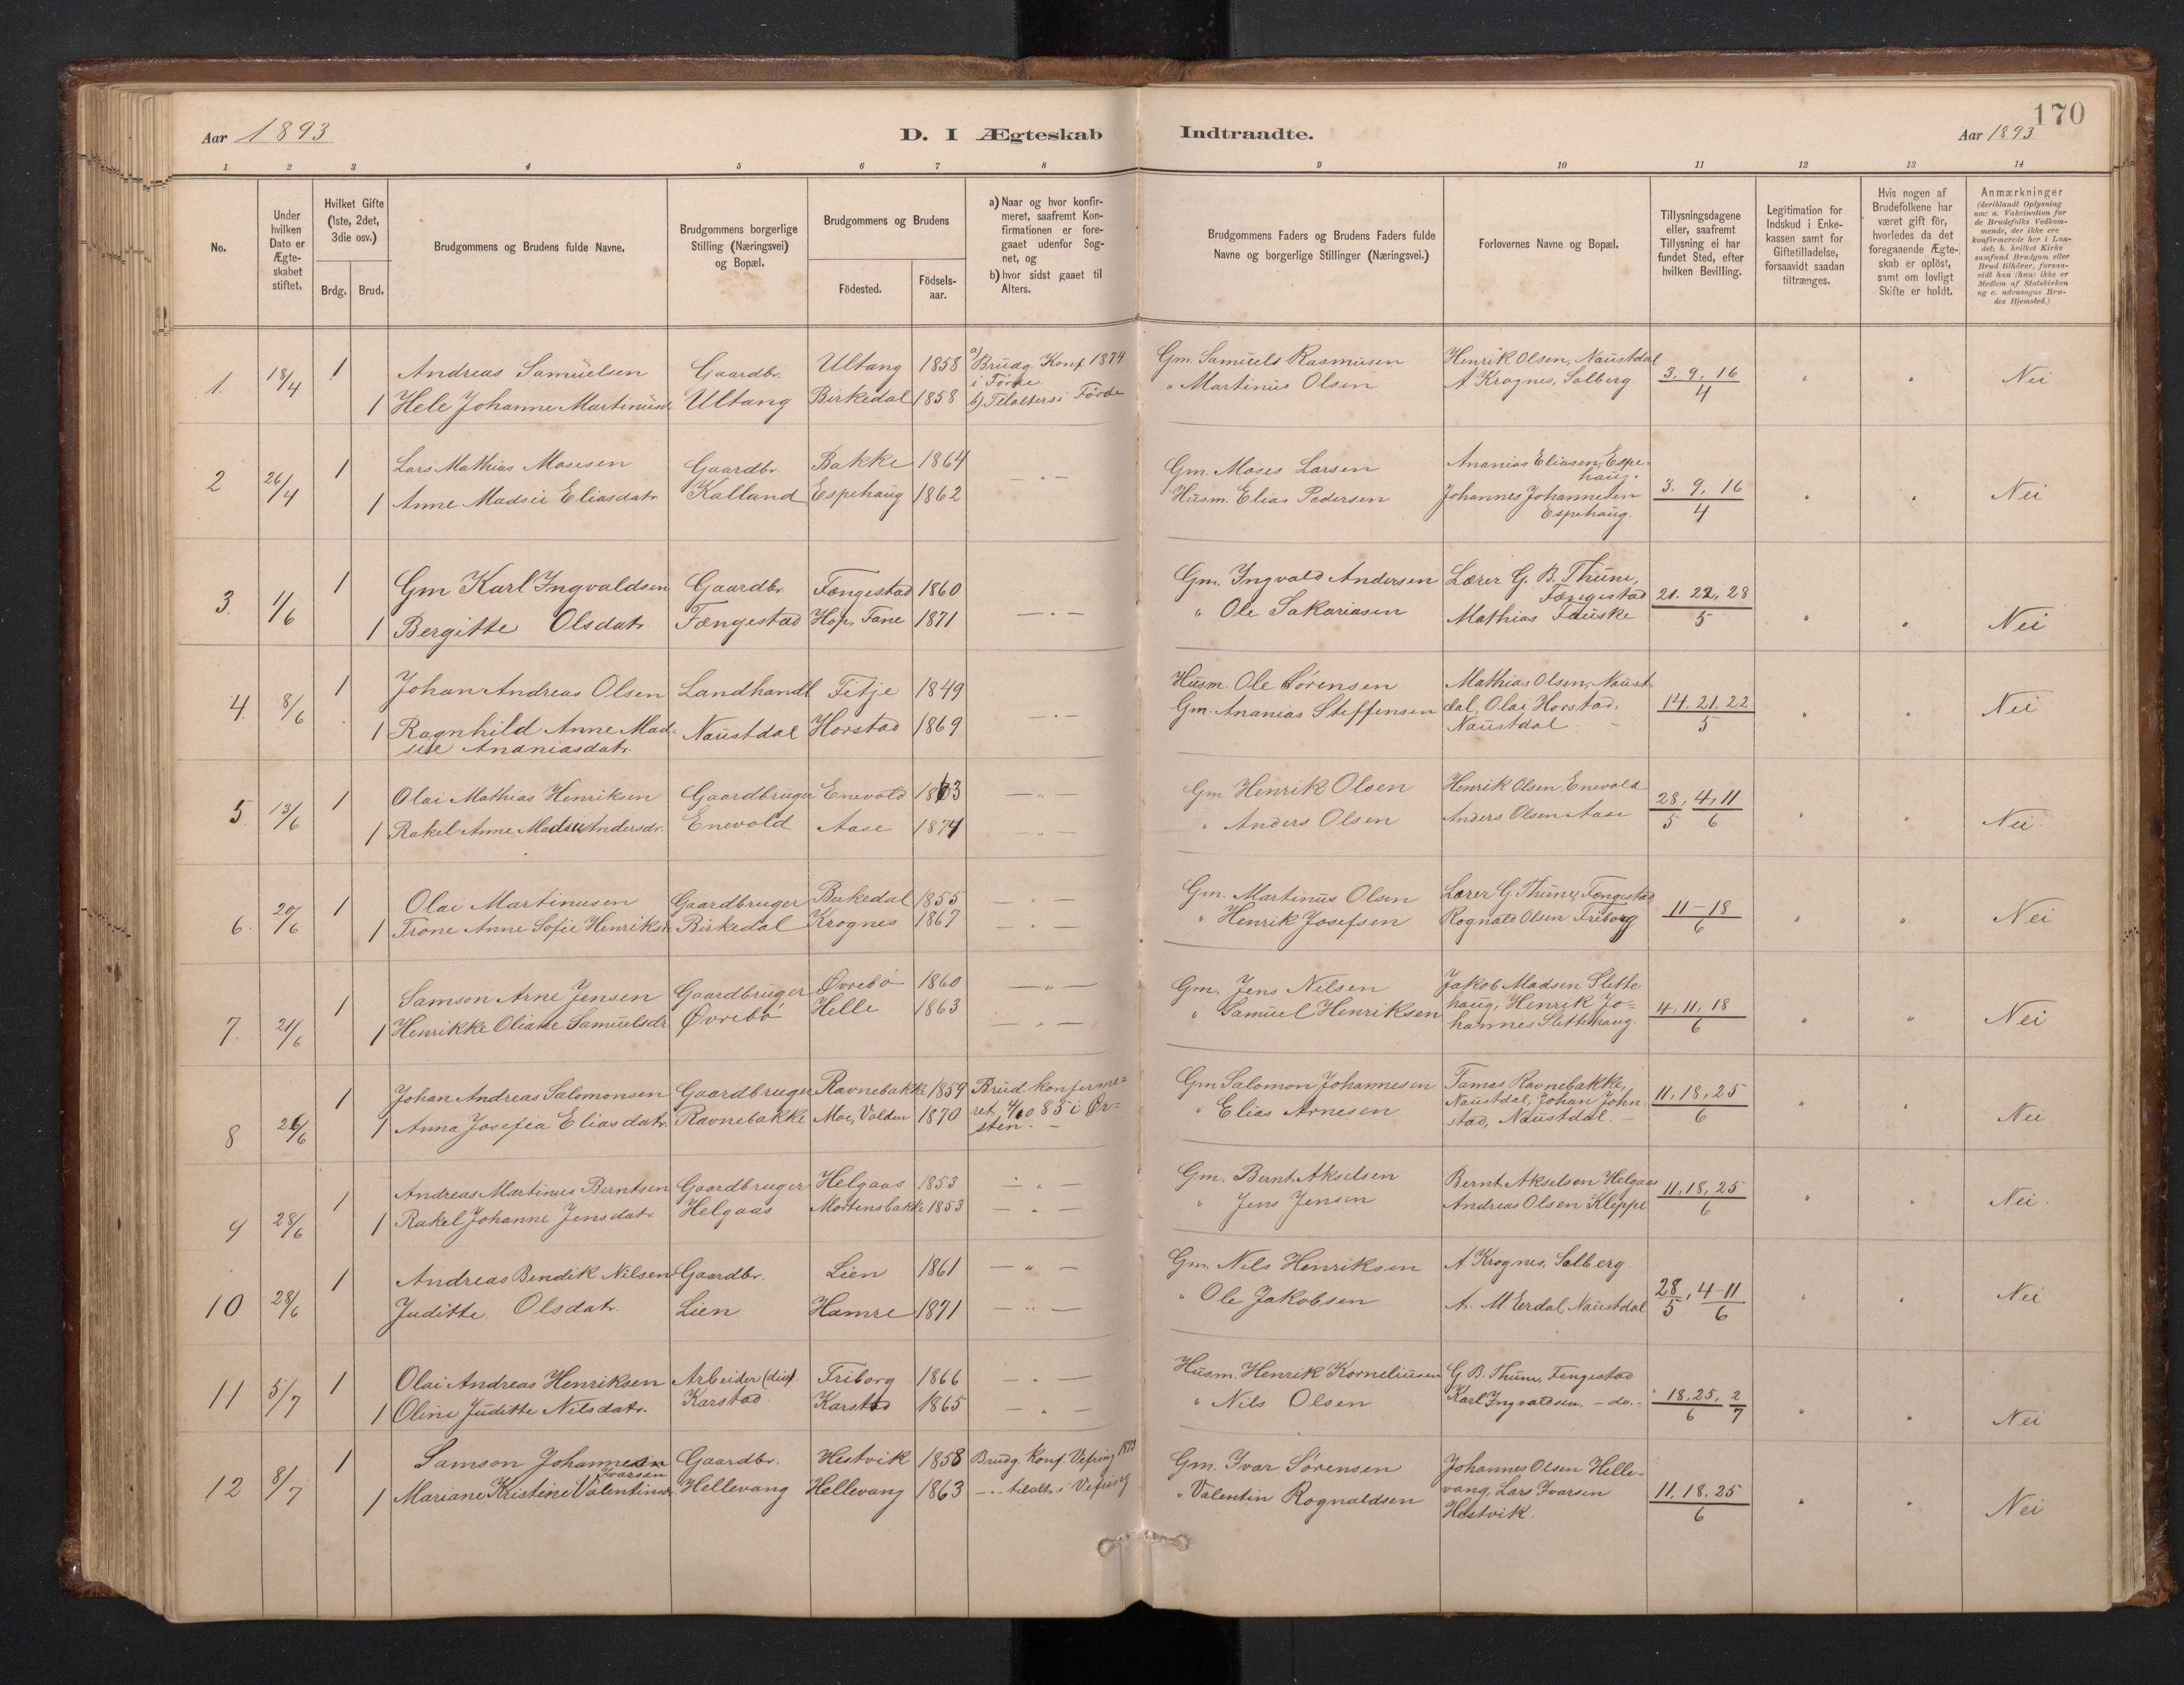 170
Aar 1893
D. I Ægteskab Indtraadte.
Aar 1893
1 2 3 4 5 6 7 8 9 10 11 12 13 14
No.
Under hvilken Dato er Ægte-skabet stiftet.
Hvilket Gifte (1ste, 2det, 3die osv.)
Brdg. Brud.
Brudgommens og Brudens fulde Navne.
Brudgommens borgerlige Stilling (Næringsvei) og Bopæl.
Brudgommens og Brudens
Födested.
Födsels-aar.
a) Naar og hvor konfir-meret, saafremt Kon-firmationen er fore-gaaet udenfor Sog-net, og
b) hvor sidst gaaet til Alters.
Brudgommens Faders og Brudens Faders fulde Navne og borgerlige Stillinger (Næringsvei.)
Forlovernes Navne og Bopæl.
Tillysningsdagene eller, saafremt Tillysning ei har fundet Sted, efter hvilken Bevilling.
Legitimation for Indskud i Enke-kassen samt for Giftetilladelse, forsaavidt saadan tiltrænges.
Hvis nogen af Brudefolkene har været gift för, hvorledes da det foregaaende Ægte-skab er oplöst, samt om lovligt Skifte er holdt.
Anmærkninger
(deriblandt Oplysning om: a. Vakcination for de Brudefolks Vedkom-mende, der ikke ere konfirmerede her i Lan-det; b. hvilket Kirke samfund Brudgom eller Brud tilhörer, forsaa-vidt han (hun) ikke er Medlem af Statskirken og c. udensogns Bru-des Hjemsted.)
1. 18/4 1 Andreas Samuelsen Gaardbr. Ultang 1858 a) Brudg. Konf. 1874 i Förde Gm. Samuels Rasmusen Henrik Olsen, Naustdal 3. 9. 16/4 " " Nei
1 Hele Johanne Martinusd. Ultang Birkedal 1858 b) Tilalters i Förde " Martinus Olsen A. Krognes, Solberg.
2 26/4 1 Lars Mathias Mosesen Gaardbr. Bakke 1864 — " — Gm. Moses Larsen Ananias Eliasen, Espe-haug. 3. 9. 16/4 " " Nei
1 Anne Madsii Eliasdatr. Kalland Espehaug 1862 Husm. Elias Pedersen Johannes Johannesen Espehaug.
3. 1/6 1 Gm Karl Ingvaldsen Gaardbr. Fængestad 1860 Gm. Ingvald Andersen Lærer G. B. Thune, Fængestad 21. 22, 28/5 " " Nei
1 Bergitte Olsdatr. Fængestad Hop, Fane 1871 — " — " Ole Sakariasen Mathias Fauske
4. 8/6 1 Johan Andreas Olsen Landhandl Fitje 1849 Husm. Ole Sörensen Mathias Olsen, Naust-dal, Olai Horstad, Naustdal. 14. 21. 22/5 " " Nei
1 Ragnhild Anne Mad-sie Ananiasdatr. Naustdal Horstad 1869 — " — Gm. Ananias Steffensen
5 13/6 1 Olai Mathias Henriksen Gaardbruger Enevold 1863 — " — Gm. Henrik Olsen Henrik Olsen, Enevold 28/5, 4, 11/6 " " Nei.
1 Rakel Anne Madsii Andersdr. Enevold Aase 1874 — " — " Anders Olsen Anders Olsen Aase
6. 20/6 1 Olai Martinusen Gaardbruger Birkedal 1855 — " — Gm. Martinus Olsen Lærer G Thune, Fængestad 11–18/6 " " Nei
1 Trone Anne Sofie Henriksd. Birkedal Krognes 1867 — " — " Henrik Josefsen Rognald Olsen Friborg
7. 21/6 1 Samson Arne Jensen Gaardbruger Øvrebö 1860 — " — Gm. Jens Nilsen Jakob Madsen Slette haug, Henrik Jo-hannes Slettehaug. 4. 11. 18/6 " " Nei
1 Henrikke Oliane Samuelsdr. Øvrebö Helle 1863 — " — " Samuel Henriksen
8 26/6 1 Johan Andreas Salomonsen Gaardbruger Ravnebakke 1859 Brud. konfirme-ret, 4/10 85 i Ør-sten. — Gm Salomon Johannesen Tamas Ravnebakke, Naustdal, Johan John-stad, Naustdal. — 11. 18. 25/6 Nei
1 Anna Josefia Eliasdatr. Ravnebakke Moe, Volden 1870 " Elias Arnesen
9 28/6 1 Andreas Martinus Berntsen Gaardbruger Helgaas 1853 — " — Gm. Bernt Akselsen Bernt Akselsen Helgaas 11. 18. 25/6 " " Nei.
1 Rakel Johanne Jensdatr. Helgaas Mortensbakke 1853 — " — " Jens Jensen Andreas Olsen Kleppe
10 28/6 1 Andreas Bendik Nilsen Gaardbr. Lien 1861 — " — Gm. Nils Henriksen A Krognes, Solberg 28/5, 4–11/6 " " Nei
Juditte Olsdatr. Lien Hamre 1871 — " — " Ole Jakobsen A. M Erdal Naustdal
11 5/7 1 Olai Andreas Henriksen Arbeider Friborg 1866 — " — Husm. Henrik Korneliusen G B. Thune, Fengestad 18. 25/6, 2/7 " " Nei
1 Oline Juditte Nilsdatr. Karstad Karstad 1865 — " — " Nils Olsen Karl Ingvaldsen. – do. –
12 8/7 1 Samson Johannesen Ivarsen Gaardbr. Hestvik 1858 Brudg. konf. Vefring 1873 Gm. Ivar Sörensen Johannes Olsen Helle-vang, Lars Ivarsen Hestvik. 11. 18. 25/6 " " Nei
1 Mariane Kristine Valentinsdr. Hellevang Hellevang 1863 — " tilalt. i Vefring " Valentin Rognaldsen